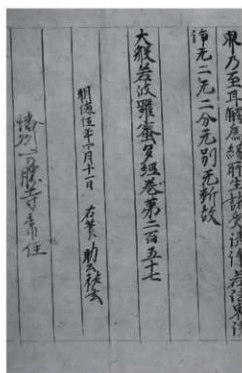 界乃至耳觸爲緣所生諸受清淨若
淨无二无二分无別无斷故
大般若波羅蜜多經卷第二百五十七
明德伍年月十一日 右筆助
勝寺常住